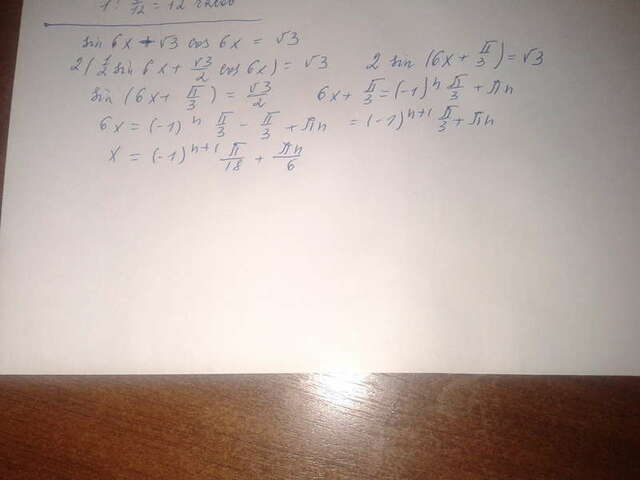 = 12 часов
sin 6x + √3 cos 6x = √3
2(1/2 sin 6x + √3/2 cos 6x) = √3 2 sin (6x + π/3) = √3
sin (6x + π/3) = √3/2 6x + π/3 = (-1)^n π/3 + πn
6x = (-1)^n π/3 - π/3 + πn = (-1)^{n+1} π/3 + πn
x = (-1)^{n+1} π/18 + πn/6